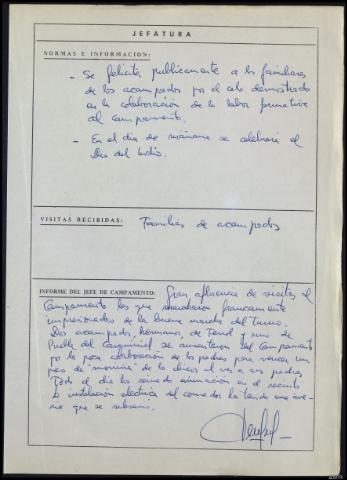 JEFATURA
NORMAS E INFORMACION:
- Se felicita publicamente a los familiares
de los acampados por el celo demostrado
en la colaboración de la labor formativa
del campamento.
- En el dia de mañana se celebrará el
Dia del Indio.
VISITAS RECIBIDAS: Familias de acampados
INFORME DEL JEFE DE CAMPAMENTO: Gran afluencia de visitas al
Campamento los que marcharon francamente
impresionados de la buena marcha del Turno.
Dos acampados, hermanos, de Teruel y uno de
Puebla del se ausentaron del Campamento
por la poca colaboración de los padres para vencer un
poco de "morriña" de los chicos al ver a sus padres
Todo el dia ha reinado animación en el recinto
La instalación eléctrica del comedor ha tenido una ave-
ria que se subsanó.